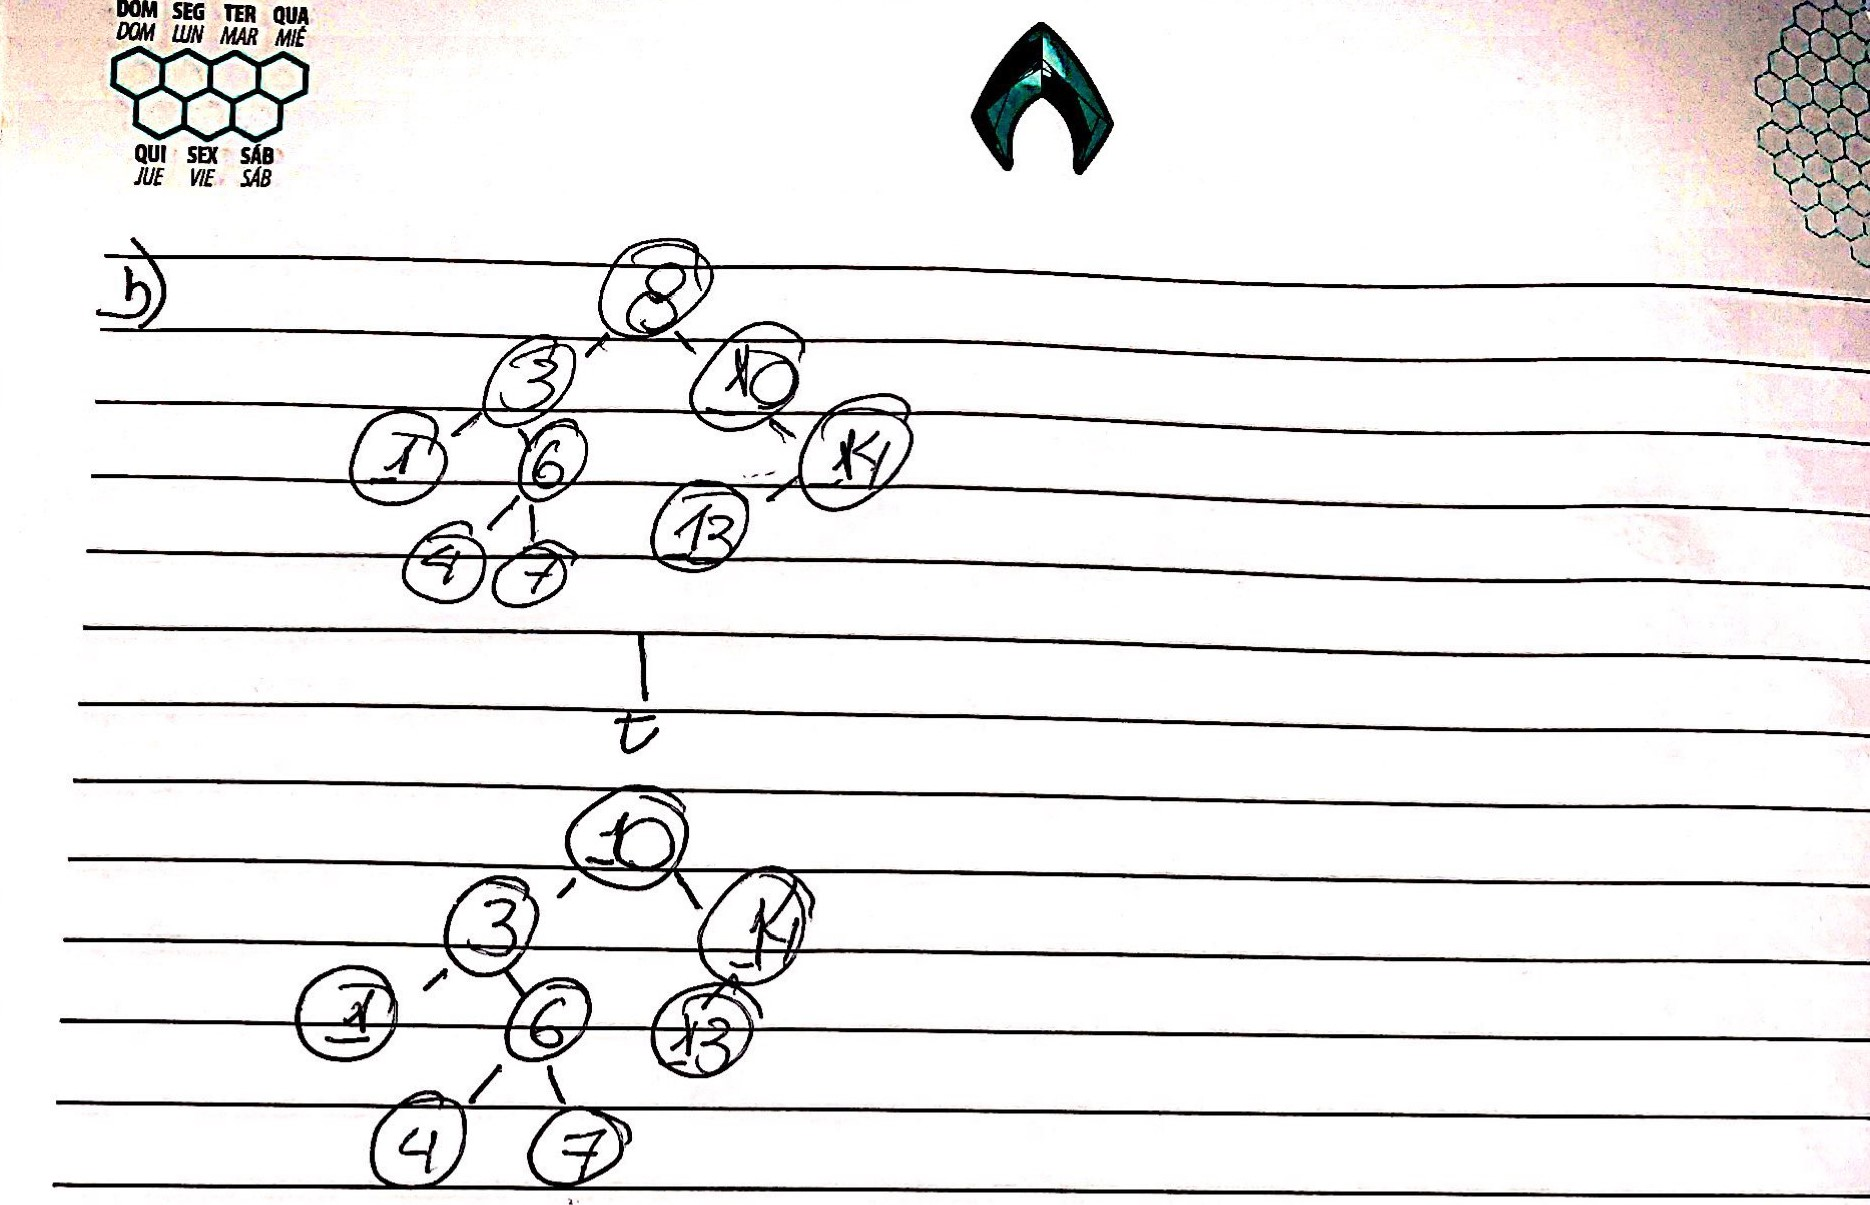 DOM SEG TER QUA
DOM LUN MAR MIÉ
QUI SEX SÁB
JUE VIE SÁB
b)
8
3 10
1 6 14
4 7 13
t
10
3 14
1 6 13
4 7